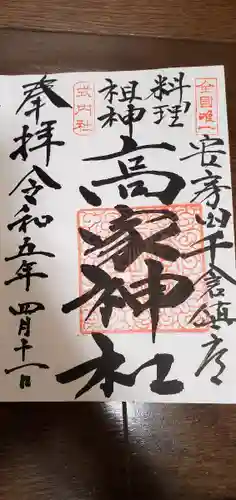 全国唯一
安房国千倉鎮座
料理
祖神
式内社
高家神社
奉拝
令和五年四月十一日